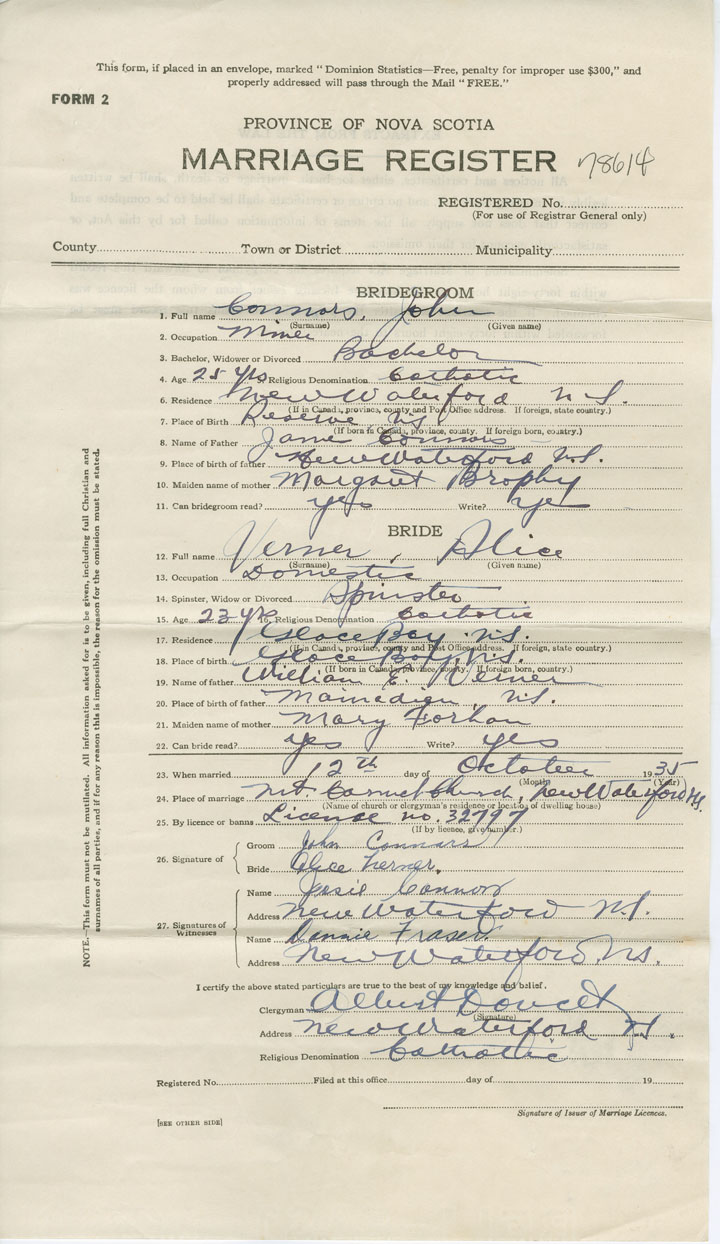 This form, if placed in an envelope, marked " Dominion Statistics—Free, penalty for improper use $300," and
properly addressed will pass through the Mail " FREE."
FORM 2
PROVINCE OF NOVA SCOTIA
MARRIAGE REGISTER 78614
REGISTERED No.
(For use of Registrar General only)
County Town or District Municipality
BRIDEGROOM
1. Full name Connors, John
(Surname) (Given name)
2. Occupation Miner
3. Bachelor, Widower or Divorced Bachelor
4. Age 25 yrs Religious Denomination Catholic
6. Residence New Waterford N.S.
(If in Canada, province, county and Post Office address. If foreign, state country.)
7. Place of Birth Reserve N.S.
(If born in Canada, province, county. If foreign born, country.)
8. Name of Father James Connors
9. Place of birth of father New Waterford N.S.
10. Maiden name of mother Margaret Brophy
11. Can bridegroom read? yes Write? yes
BRIDE
12. Full name Verner, Alice
(Surname) (Given name)
13. Occupation Domestic
14. Spinster, Widow or Divorced Spinster
15. Age 23 yrs 16. Religious Denomination Catholic
17. Residence Glace Bay N.S.
(If in Canada, province, county and Post Office address. If foreign, state country.)
18. Place of birth Glace Bay, N.S.
(If born in Canada, province, county. If foreign born, country.)
19. Name of father William E. Verner
20. Place of birth of father Mainadieu, N.S.
21. Maiden name of mother Mary Forhan
22. Can bride read? yes Write? yes
23. When married 12th day of October 1935
(Month) (Year)
24. Place of marriage Mt. Carmel Church, New Waterford N.S.
(Name of church or clergyman's residence or location of dwelling house)
25. By licence or banns License no. 32797
(If by licence, give number.)
26. Signature of
Groom John Connors
Bride Alice Verner.
27. Signatures of Witnesses
Name Josie Connors
Address New Waterford N.S.
Name Dannie Fraser.
Address New Waterford, N.S.
I certify the above stated particulars are true to the best of my knowledge and belief.
Clergyman Albert Doucet
(Signature)
Address New Waterford N.S.
Religious Denomination Catholic
Registered No. Filed at this office day of 19
Signature of Issuer of Marriage Licences.
[SEE OTHER SIDE]
NOTE.—This form must not be mutilated. All information asked for is to be given, including full Christian and
surnames of all parties, and if for any reason this is impossible, the reason for the omission must be stated.